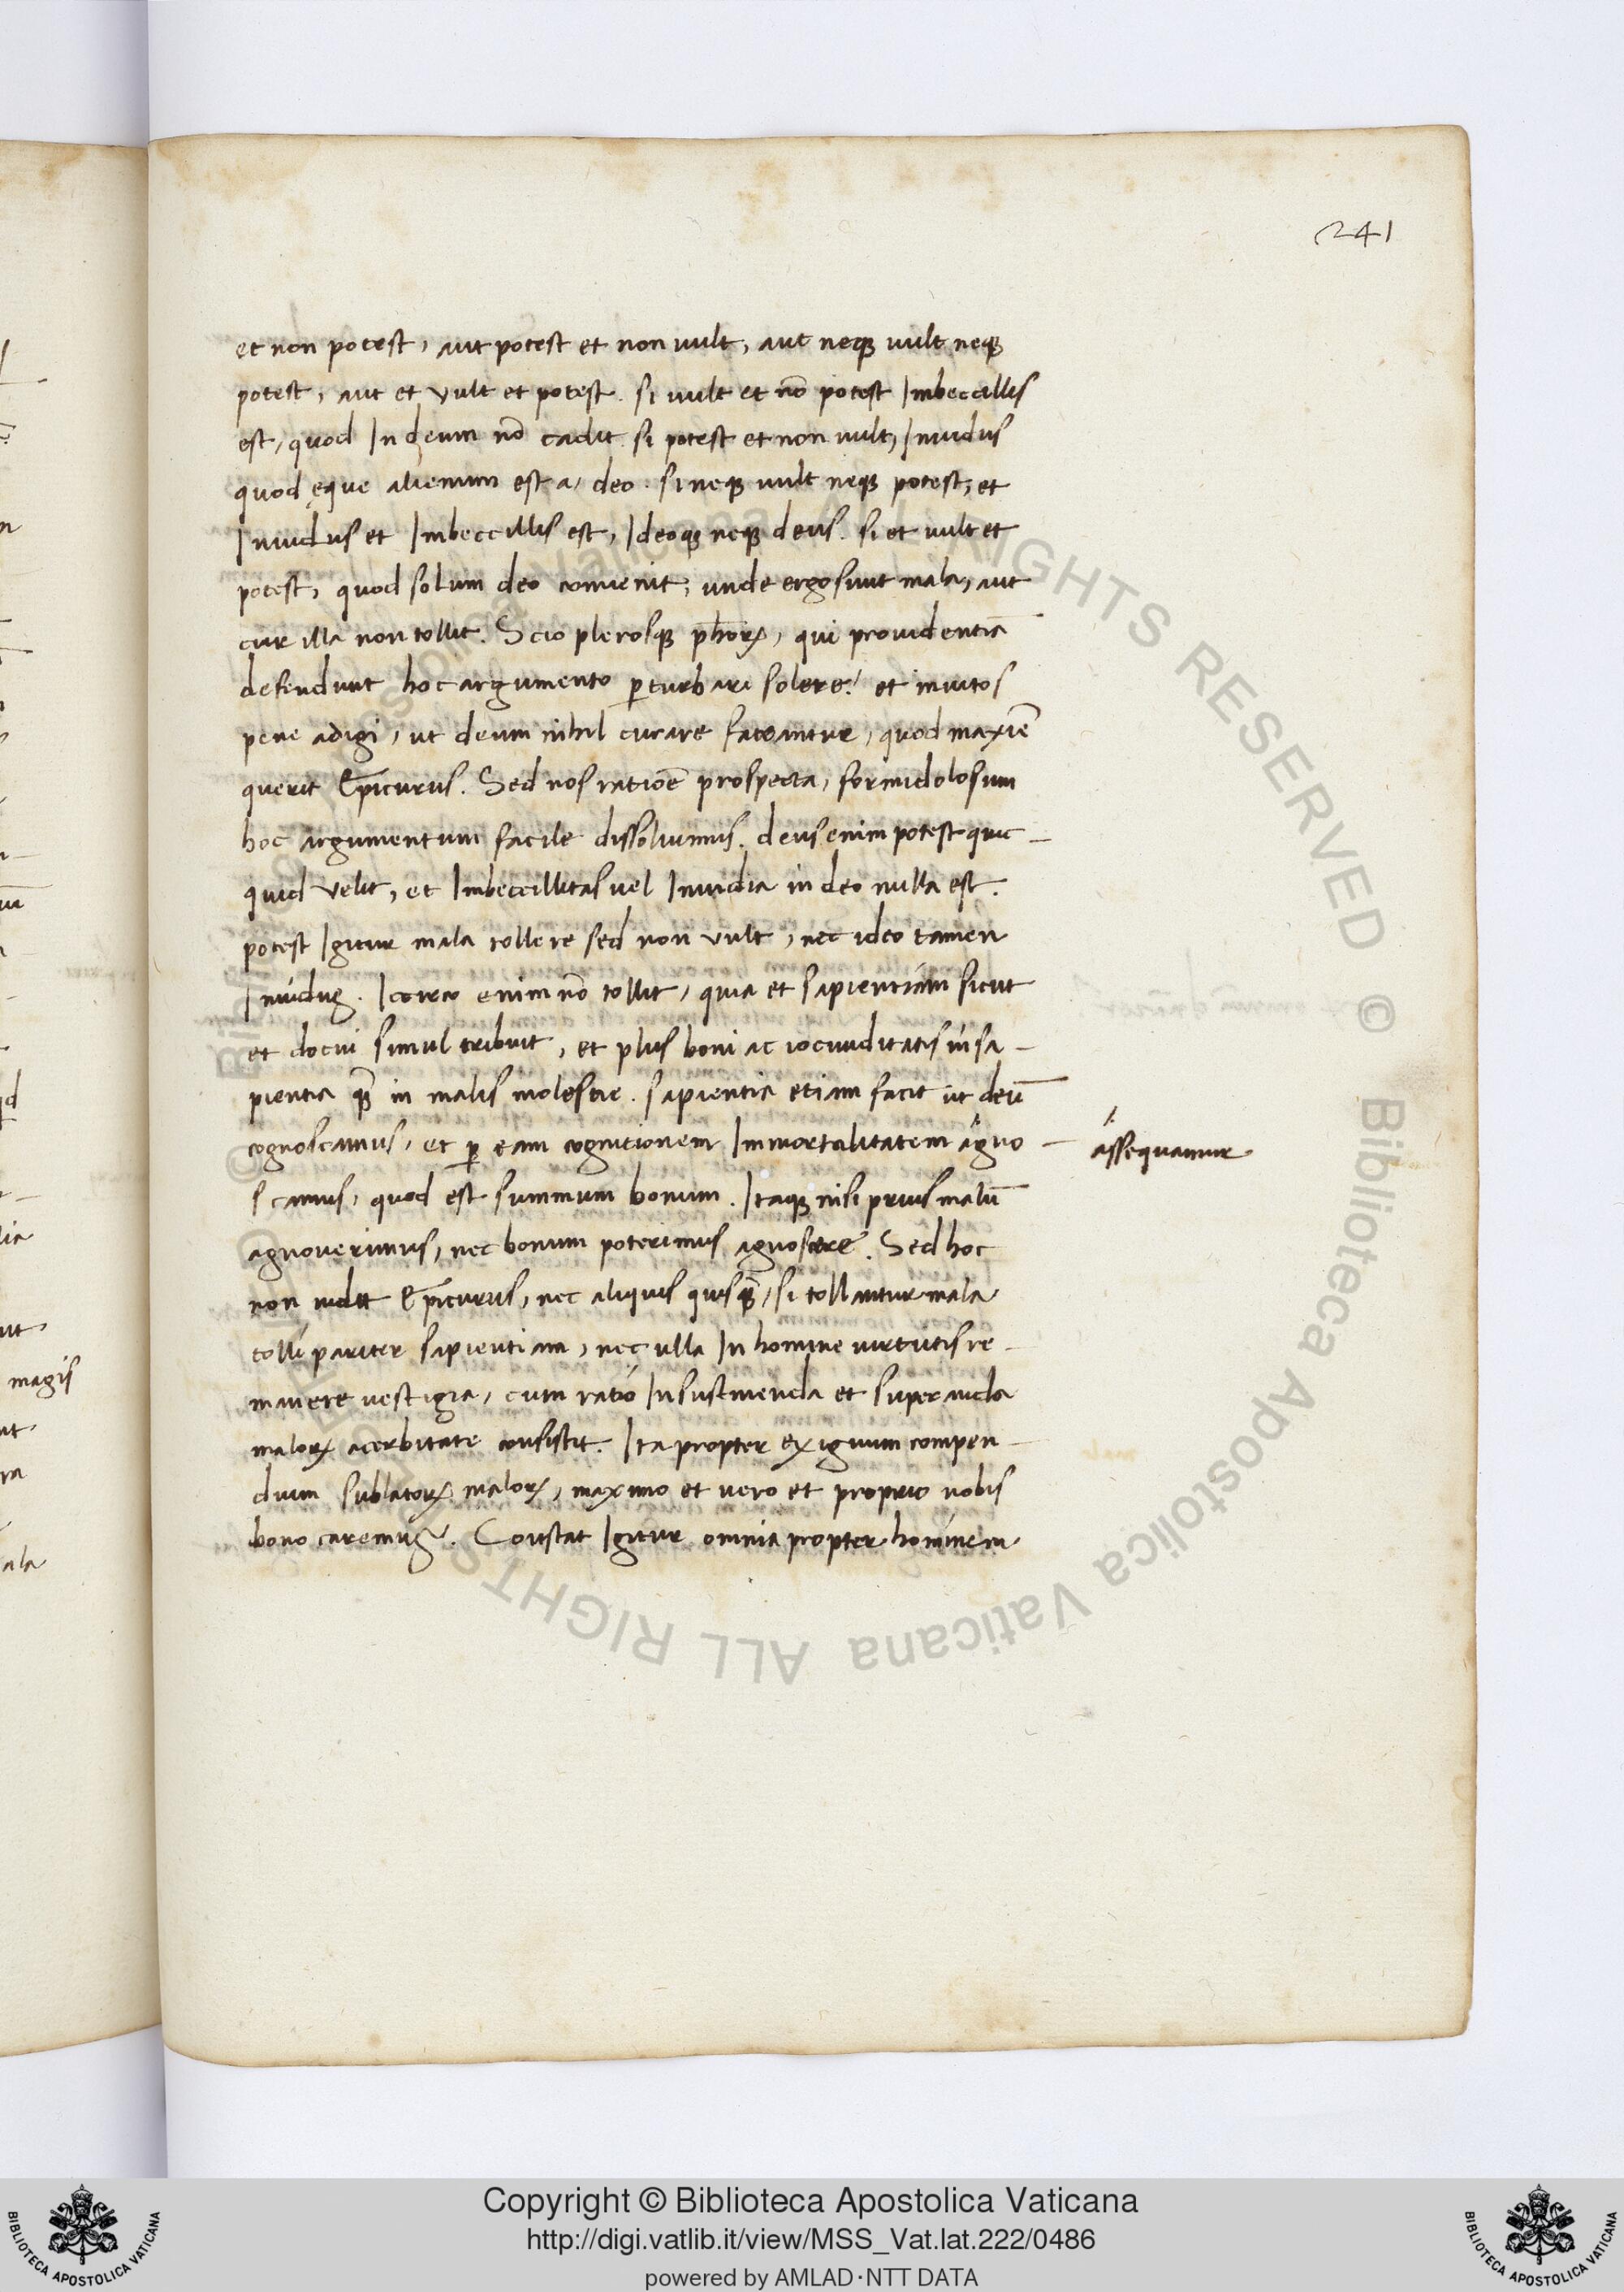 241
et non potest, aut potest et non uult, aut neqꝫ uult neqꝫ
potest, aut et vult et potest. si uult et nō potest Imbecillis
est, quod In deum nō cadit. si potest et non uult, Inuidus
quod ęque alienum est a, deo. si neqꝫ uult neqꝫ potest, et
Inuidus et Imbecillis est, Ideoqꝫ neqꝫ deus. si et uult et
potest, quod solum deo conuenit, unde ergo sunt mala, aut
cur illa non tollit. Scio plerosqꝫ ph̄oꝝ, qui prouidentiā
defendunt hoc argumento ꝑturbari solere. et inuitos
pene adigi, ut deum nihil curare fateantur, quod maxīe
querit Epicurus. Sed nos ratiōe prospecta, formidolosum
hoc argumentum facile dissoluimus. deus enim potest quic-
quid velit, et Imbecillitas uel Inuidia in deo nulla est.
potest Igitur mala tollere sed non vult, nec ideo tamen
Inuidꝰ. Icirco enim nō tollit, quia et sapientiam sicut
et docui simul tribuit, et plus boni ac iocunditatis in sa-
pientia qꝫ̄ in malis molestie. sapientia etiam facit ut deū
cognoscamus, et ꝑ eam cognitionem Immortalitatem agno-
assequamur
scamus, quod est summum bonum. Itaqꝫ nisi prius malū
agnouerimus, nec bonum poterimus agnoscere. Sed hoc
non uidit Epicurus, nec aliquis quisqꝫ̄, si tollantur mala
tolli pariter sapientiam, nec ulla In homine uirtutis re-
manere uestigia, cum ratio In sustinenda et superanda
maloꝝ acerbitate consistit. Ita propter exiguum compen-
dium sublatoꝝ maloꝝ, maximo et uero et proprio nobis
bono caremꝰ. Constat Igitur omnia propter hominem
magis
ala
Copyright © Biblioteca Apostolica Vaticana
http://digi.vatlib.it/view/MSS_Vat.lat.222/0486
powered by AMLAD·NTT DATA
BIBLIOTECA APOSTOLICA VATICANA
BIBLIOTECA APOSTOLICA VATICANA
© Biblioteca Apostolica Vaticana ALL RIGHTS RESERVED © Biblioteca Apostolica Vaticana ALL RIGHTS RESERVED